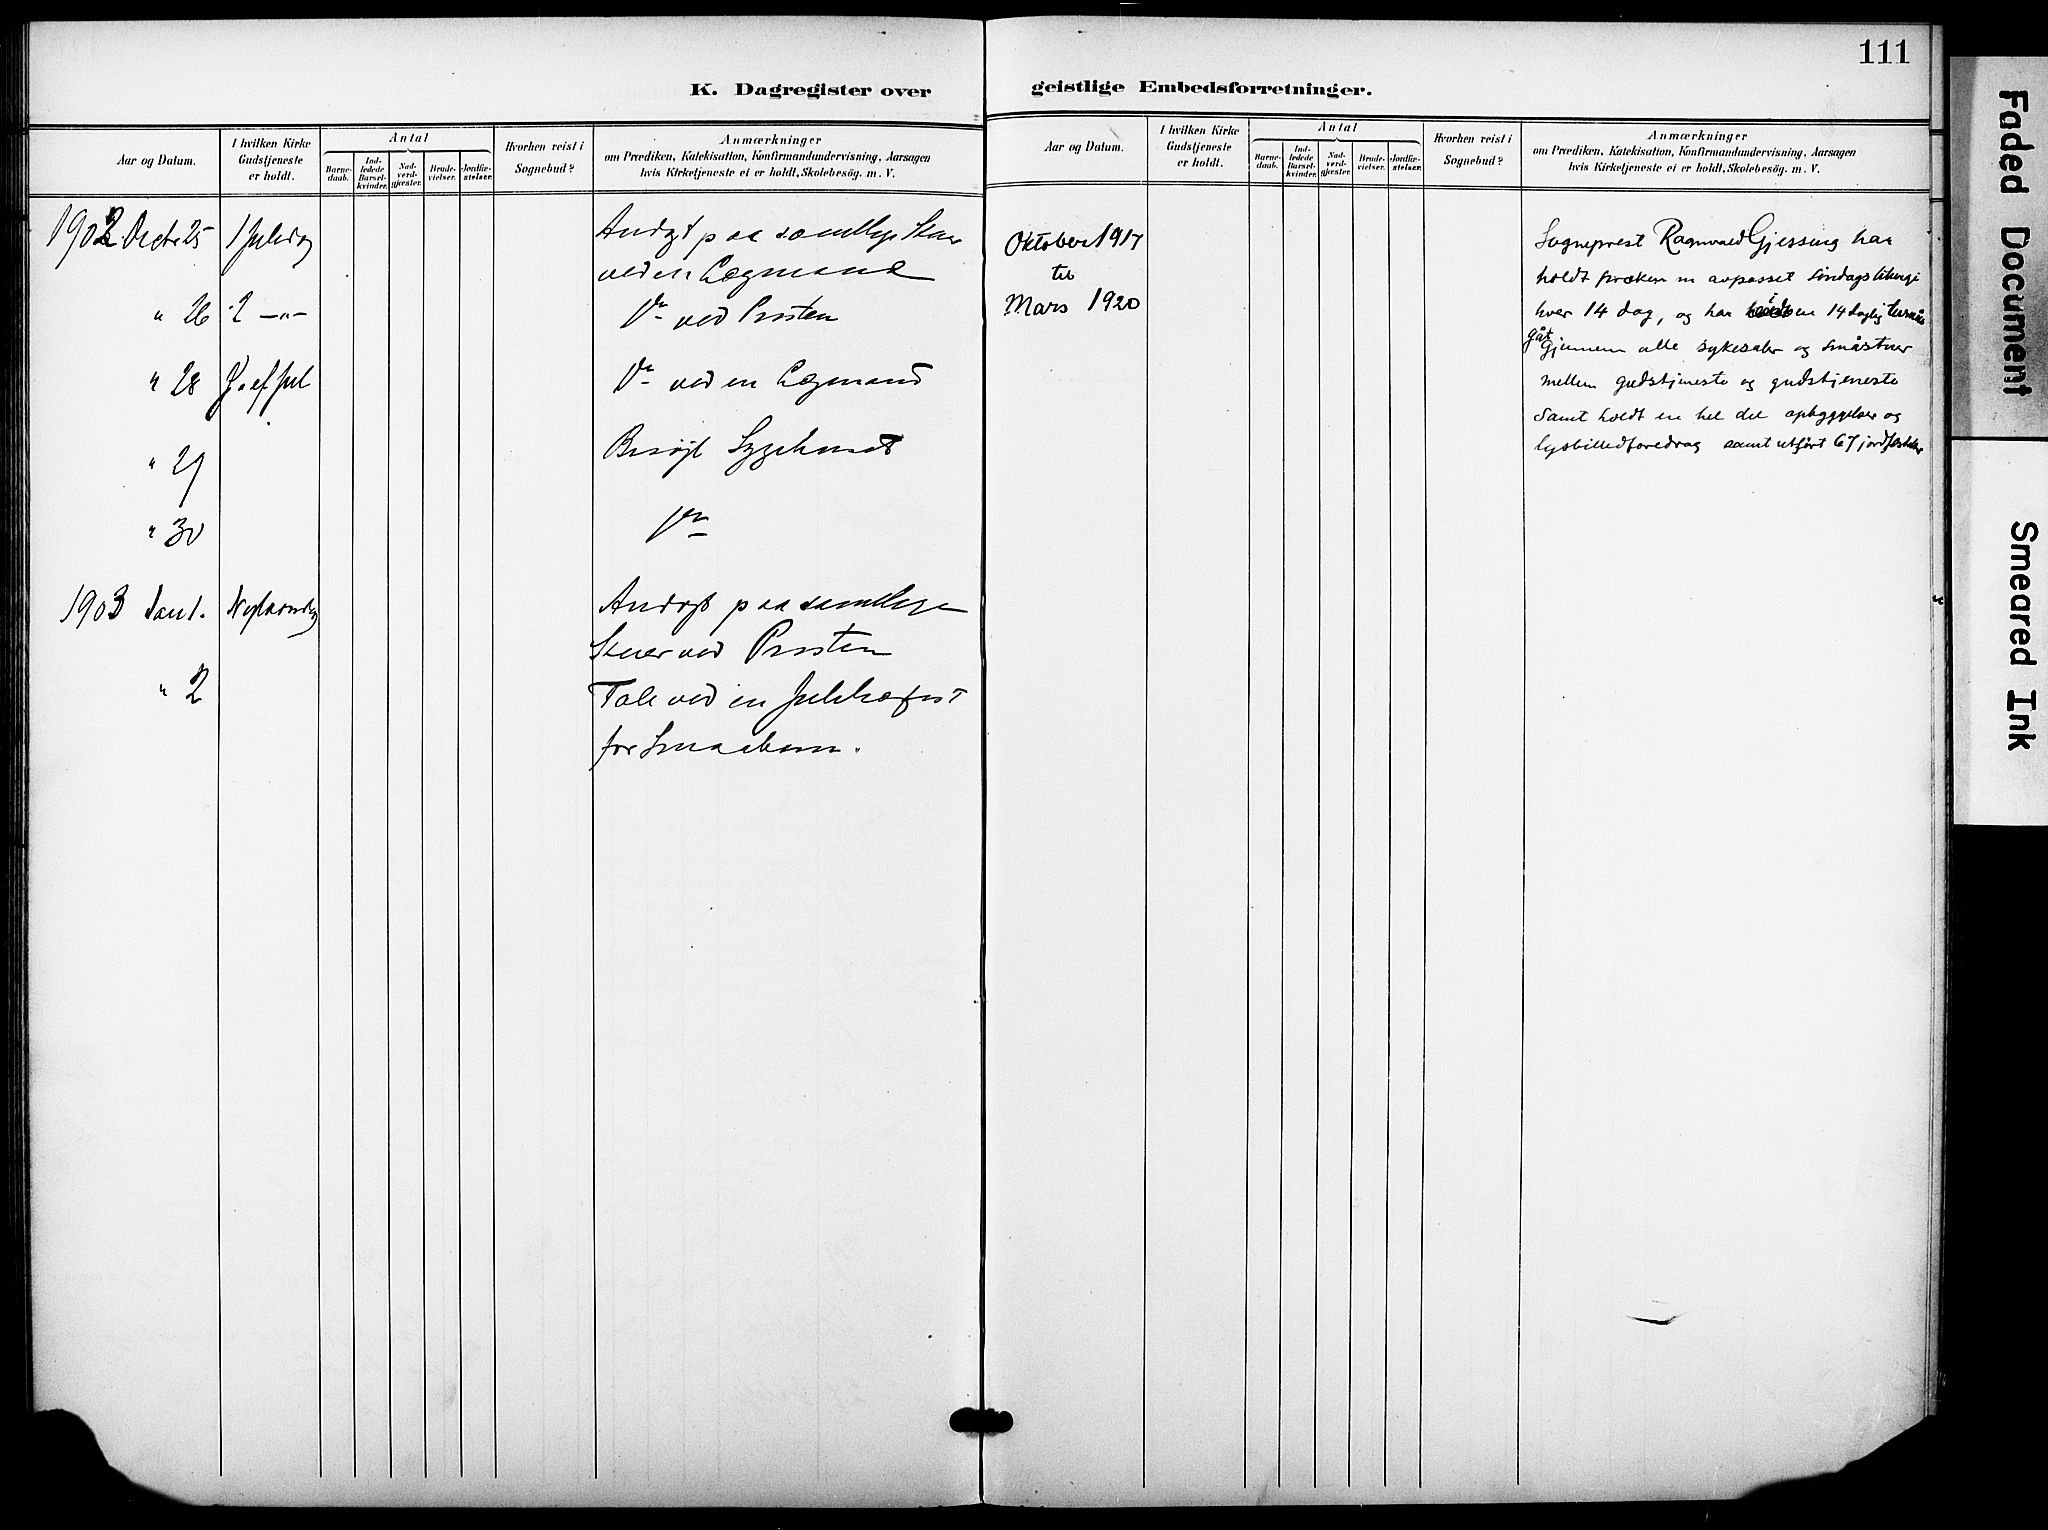 111
K. Dagregister over
Aar og Datum.
I hvilken Kirke
Gudstjeneste
er holdt.
Antal
Barne-
daab.
Ind-
ledede
Barsel-
kvinder.
Nad-
verd-
gjester.
Brude-
vielser.
Jordfæ-
stelser.
Hvorhen reist i
Sognebud?
Anmærkninger
om Prædiken, Katekisation, Konfirmandundervisning, Aarsagen
hvis Kirketjeneste ei er holdt, Skolebesög. m. V.
1902 Decbr 25 1 Juledag Andagt paa samtlige Stuer
ved en Lægmand
" 26 2 –"– Do ved Presten
" 28 S. ef Jul Do ved en Lægmand
" 29 Besøgt Sygehuset
" 30 Do
1903 Jan 1. Nytaarsdag Andagt paa samtlige
Stuer ved Presten
" 2 Tale ved en Juletræfest
for Smaabørn.
geistlige Embedsforretninger.
Aar og Datum.
I hvilken Kirke
Gudstjeneste
er holdt.
Antal
Barne-
daab.
Ind-
ledede
Barsel-
kvinder.
Nad-
verd-
gjester.
Brude-
vielser.
Jordfæ-
stelser.
Hvorhen reist i
Sognebud?
Anmærkninger
om Prædiken, Katekisation, Konfirmandundervisning, Aarsagen
hvis Kirketjeneste ei er holdt, Skolebesög. m. V.
Oktober 1917
til
Mars 1920
Sogneprest Ragnvald Gjessing har
holdt præken m avpasset søndagsliturgi
hver 14 dag, og har i en 14 daglig turnus
gåt
gjennem alle sykesaler og småstuer
mellem gudstjeneste og gudstjeneste
samt holdt en hel del opbyggelser og
lysbilledforedrag samt utført 67 jordfæstelser
Faded Document
Smeared Ink